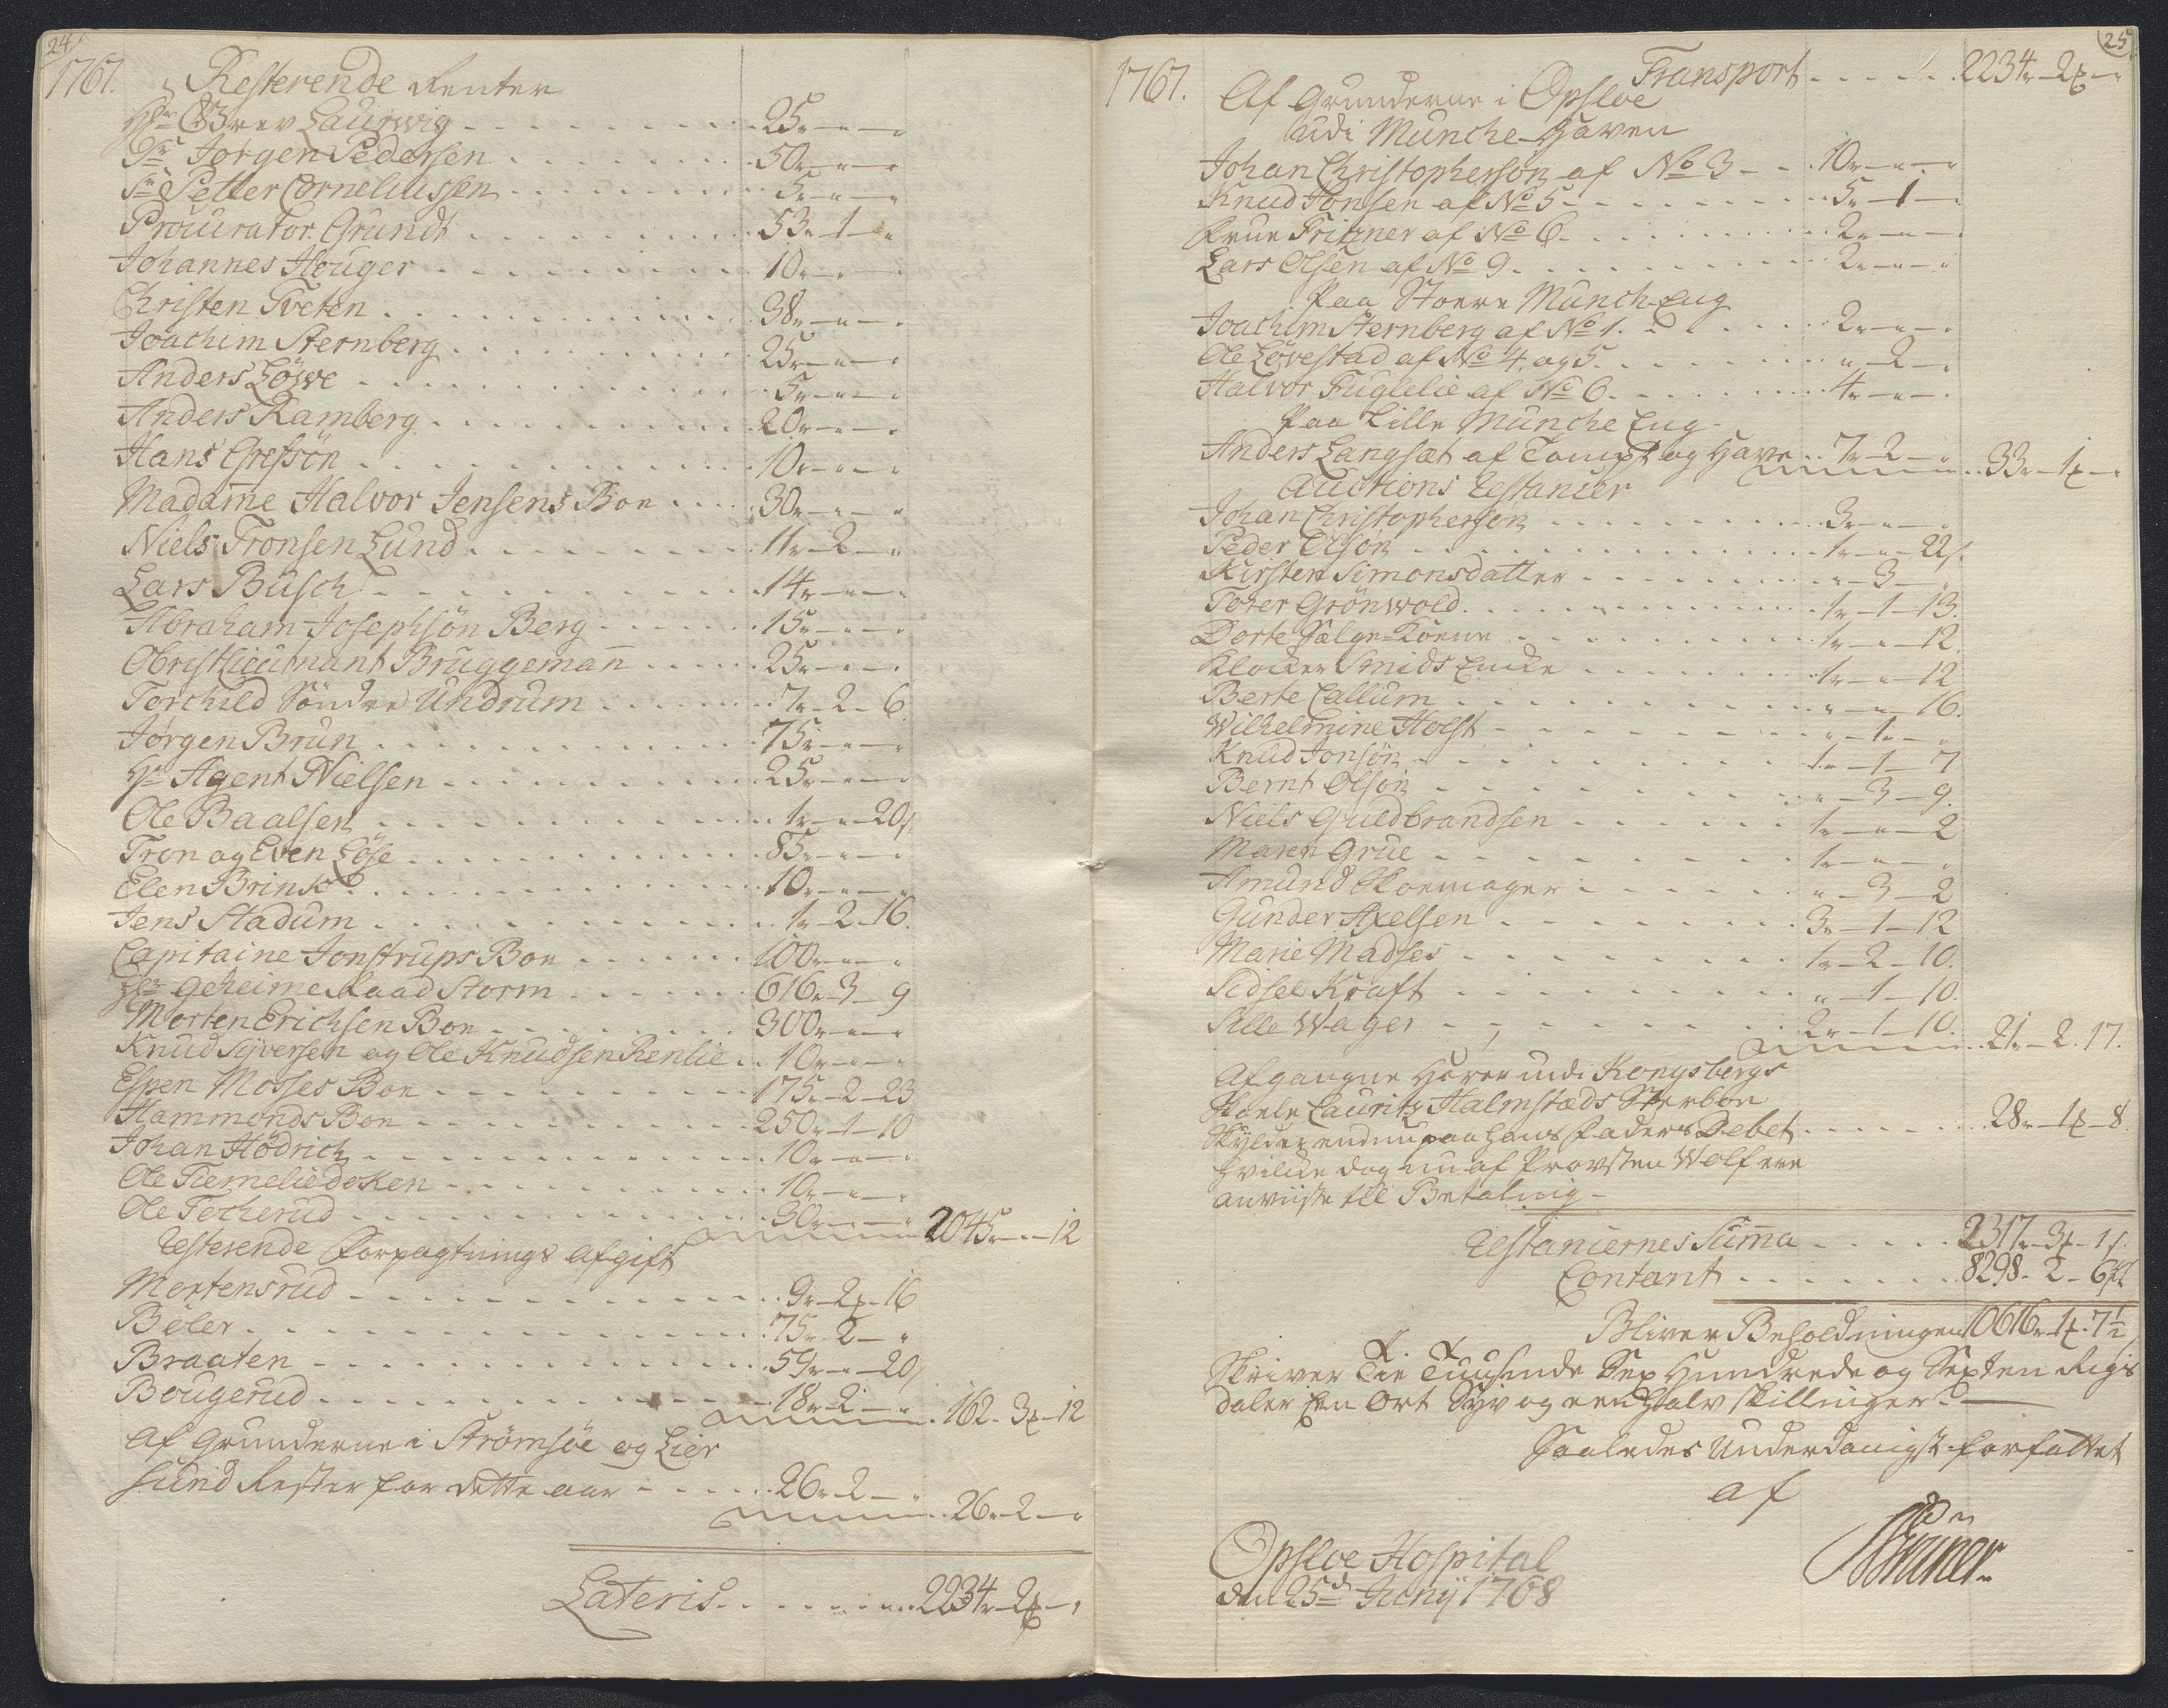 24
1767. Resterende Renter
Hr Grev Laurwig - - - 25r-"-"
Sr Jørgen Pedersen - - - 50r-"-"
Sr Petter Corneliussen - - - 5r-"-"
Procurator Grundt - - - 53r-1-"
Johannes Houger - - - 10r-"-"
Christen Tveten - - - 38r-"-"
Joachim Sternberg - - - 25r-"-"
Anders Löwe - - - 5r-"-"
Anders Ramberg - - - 20r-"-"
Hans Grefsön - - - 10r-"-"
Madame Halvor Jensens Boe - - - 30r-"-"
Niels Tronsen Lund - - - 11r-2-"
Lars Busch - - - 14r-"-"
Abraham Josephsön Berg - - - 15r-"-"
Obristlieutnant Bruggemann - - - 25r-"-"
Torchild Söndre Undrum - - - 7r-2-6
Jørgen Brun - - - 75r-"-"
Hr Agent Nielsen - - - 25r-"-"
Ole Baalsen - - - 1r-"-20
Tron og Even Löse - - - 85r-"-"
Elen Brink - - - 10r-"-"
Jens Stadum - - - 1r-2-16
Capitaine Jonstrups Boe - - - 100r-"-"
Hr Geheime Raad Storm - - - 616r-3-9
Morten Erichsen Boe - - - 300r-"-"
Knud Syversen og Ole Knudsen Renlie - - 10r-"-"
Espen Mosses Boe - - - 175r-2-23
Hammonds Boe - - - 250r-1-10
Johan Hödrich - - - 10r-"-"
Ole Tiemeliedoken - - - 10r-"-"
Ole Tocherud - - - 30r-"-" 2045r-"-12
Resterende Forpagtnings Afgift
Mortensrud - - - 9r-2-16
Böler - - - 75r-2-"
Braaten - - - 59r-"-20
Bougerud - - - 18r-2-" 162-3-12
Af Grunderne i Strømsøe og Lier
sund Rester for dette aar - - - 26r-2-"
26r-2-"
Lateris - - - 2234r-2-"
25
1767. Transport - - - 2234r-2-"
Af Grunderne i Opsloe
udi Munche-Haven
Johan Christophersön af No 3 - - 10r-"-"
Knud Jonsen af No 5 - - - 5r-1-"
Frue Fritzner af No 6 - - - 2r-"-"
Lars Olsen af No 9 - - - 2r-"-"
Paa Stoere Munch-Eng
Joachim Sternberg af No 1. - - - 2r-"-"
Ole Lövestad af No 4. og 5 - - - "-2-"
Halvor Fuglelie af No 6 - - - 4r-"-"
Paa Lille Munche Eng
Anders Langsæt af Tompt og Have - - 7r-2-" 33r-1-"
Auctions Restancer
Johan Christophersön - - - 3r-"-"
Peder Olsön - - - 1r-"-22
Kirsten Simonsdatter - - - "-3-"
Torer Grönwold - - - 1r-1-13.
Dorte Sælge-Koene - - - 1r-"-12.
Klocker Smids Encke - - - 1r-"-12
Berte Callum - - - "-"-16.
Wilhelmine Holst - - - "-1-"
Knud Jonsön - - - 1r-1-7
Bernt Olsön - - - "-3-9.
Niels Guldbrandsen - - - 1r-"-2
Maren Grue - - - 1r-"-"
Amund Skoemager - - - "-3-2
Gunder Axelsen - - - 3r-1-12
Marie Madses - - - 1r-2-10.
Sidsel Kraft - - - "-1-10.
Sille Wager - - - 2r-1-10. 21r-2.17.
Afgangne Hører udi Kongsbergs
Skoele Lauritz Halmstads Sterboe
Skylder endnu paa hans Faders Debet - - - 28r-1-8
hvilke dog nu af Provsten Wolf ere
anviiste til Betaling-
Restancernes Summa - - - 2317r-3-1
Contant - - - 8298-2-6½
Bliver Beholdningen 10616r-1-7½
Skriver Tie Tuusende Sex Hundrede og Sexten Rigs
daler Een Ort Syv og een halv skillinger
Saaledes Underdanigst forfattet
af
Opsloe Hospital
den 25d Junÿ 1768